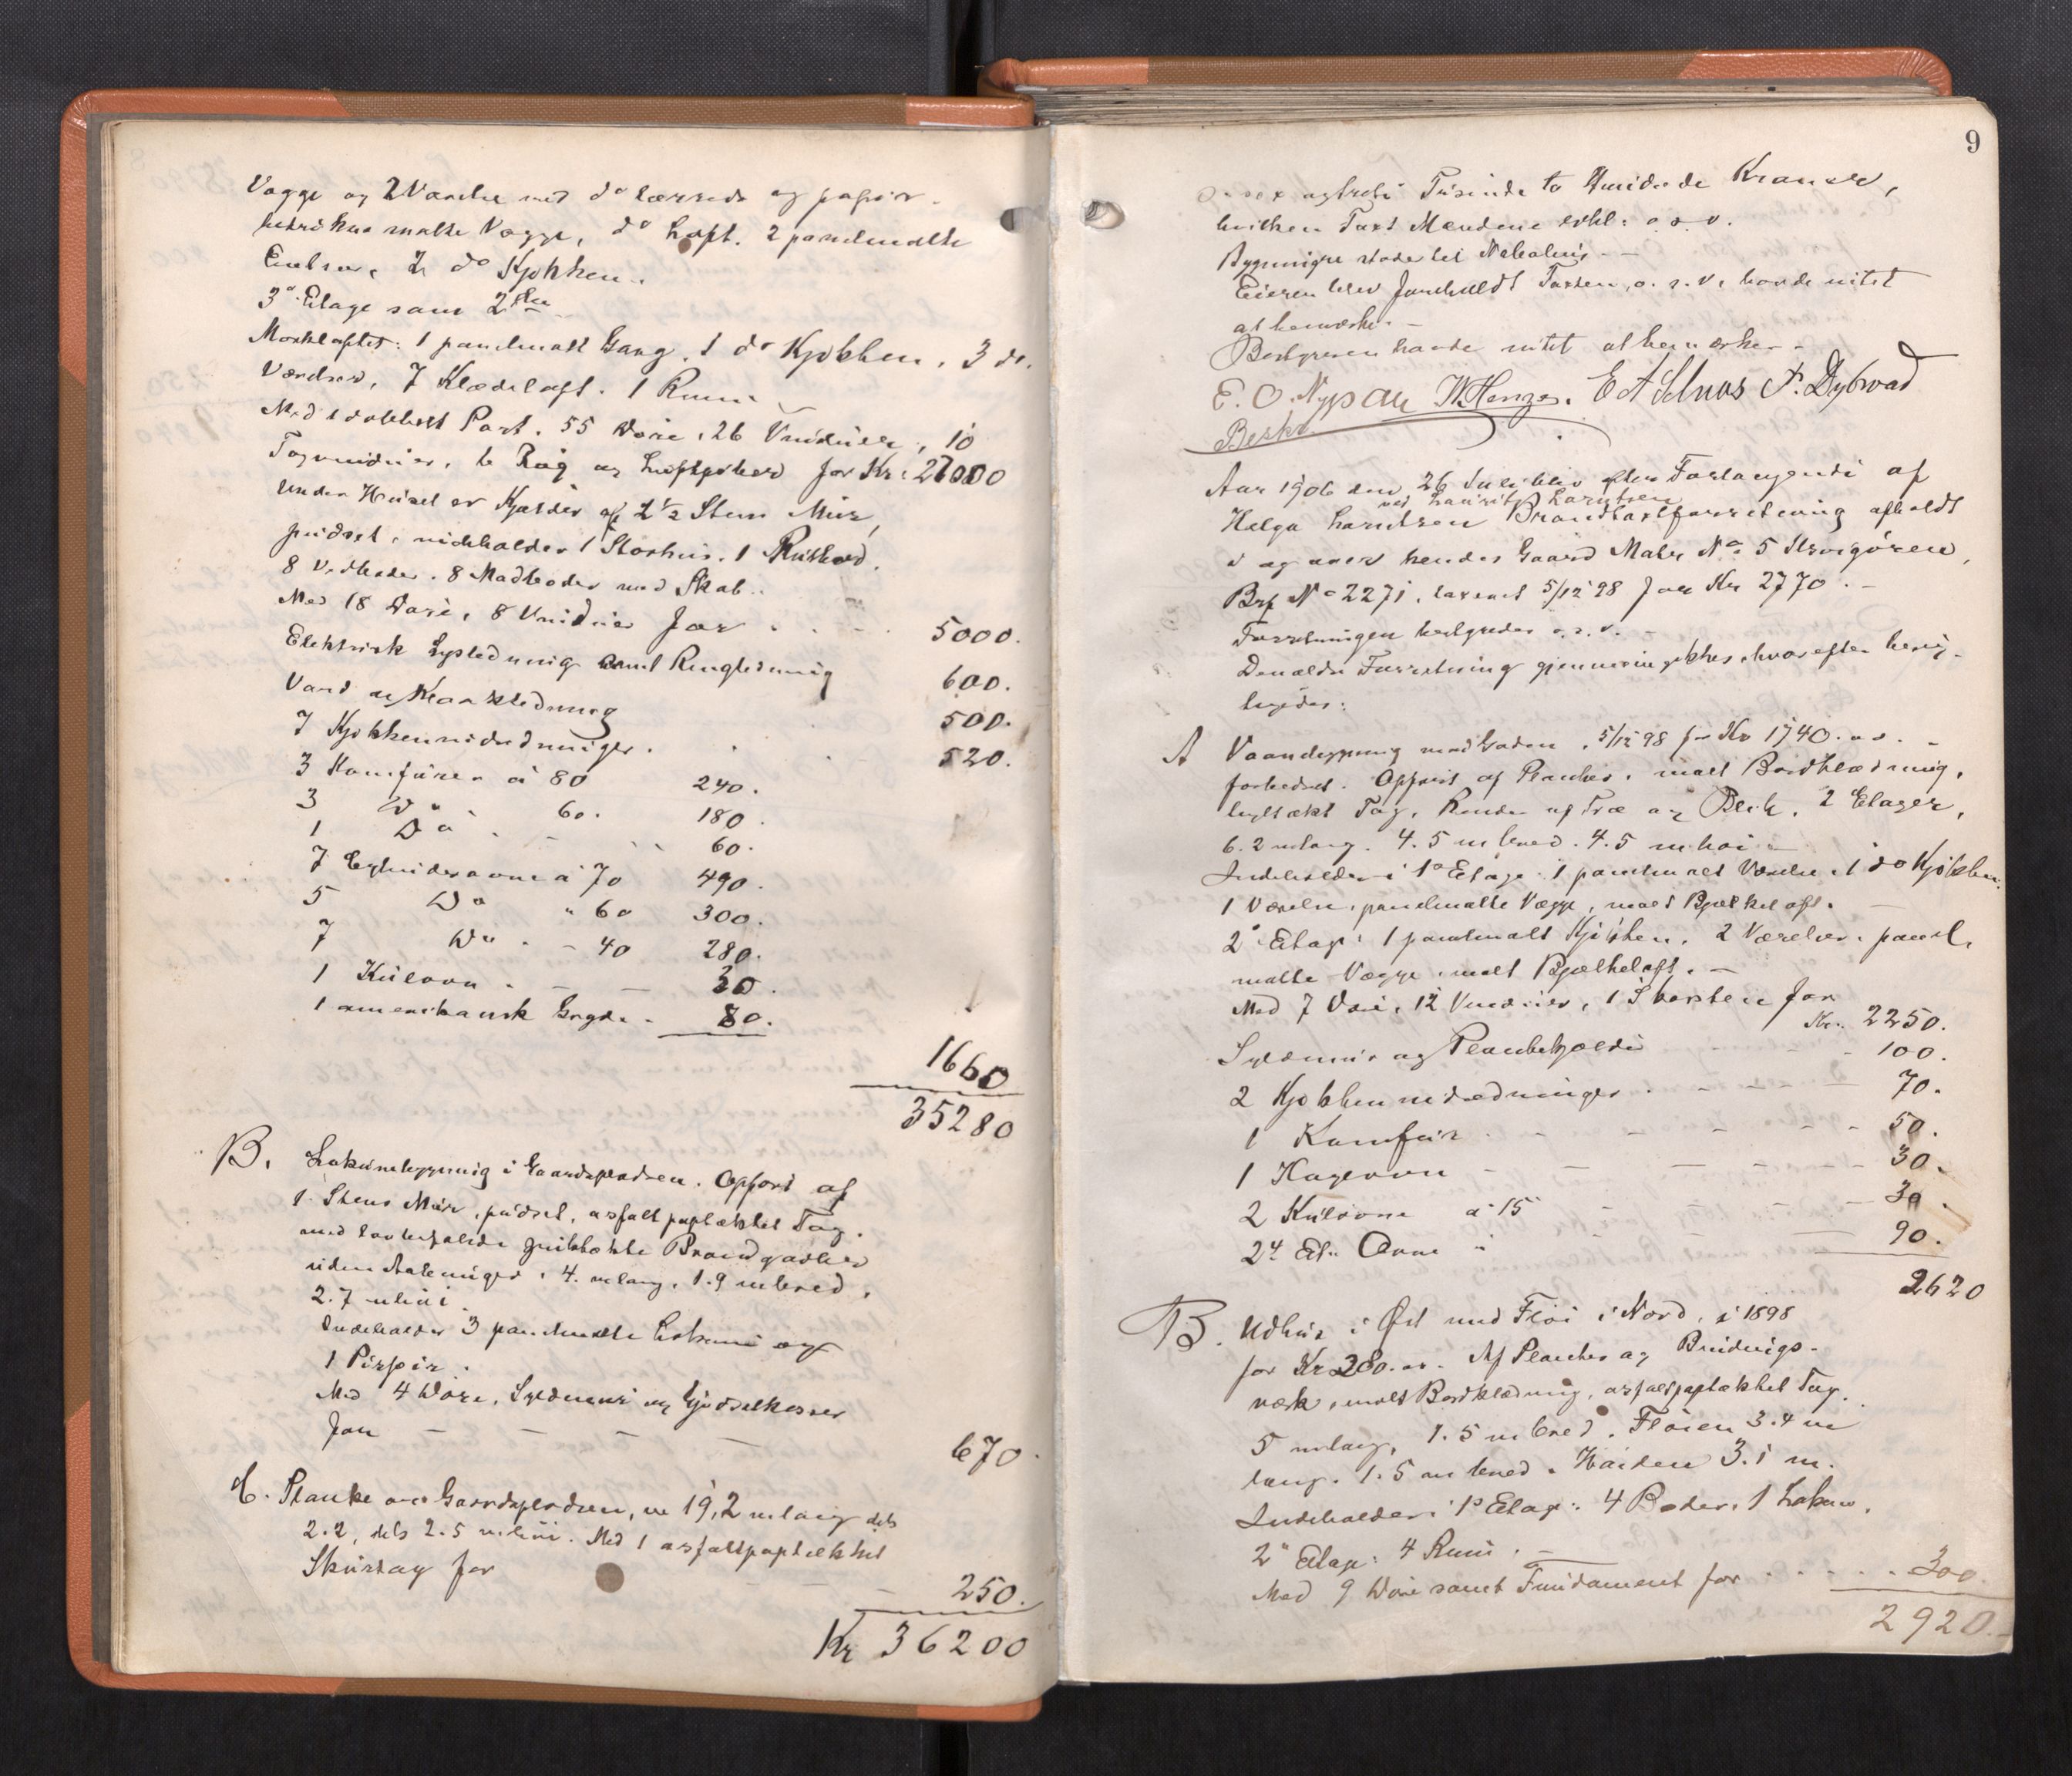 Vægge og 2 Værelse med do lærreds og papir-
betrukne malte Vægge, do Loft. 2 panelmalte
Entreer, 2 do Kjøkken.
3die Etage som 2den
Mørkloftet: 1 panelmalt Gang, 1 do Kjøkken, 3 do.
Værelser, 7 Klædeloft. 1 Rum
Med 1 dobbelt Port. 55 Døre, 26 Vinduer, 10
Tagvinduer, 6 Røg og Luftpiber for Kr: 27000
Under Huset er Kjælder af 2 1/2 Stens Mur,
pudset, indeholder 1 Storhus. 1 Rulbod.
8 Vedboder. 8 Madboder med Skab.
Med 18 Døre, 8 Vinduer for 5000.
Elektrisk Lysledning samt Ringledning 600.
Vand og Kloakledning 500.
7 Kjøkkenindredninger. 520.
3 Komfurer á 80 240.
3 Do 60. 180.
1 Do 60.
7 Cylinderovne á 70 490.
5 Do " 60 300.
7 Do - 40 280.
1 Kulovn 30.
1 amerikansk Gryde 80.
1660
35280
B. Lokumsbygning i Gaardspladsen. Opført af
1. Stens Mur, pudset, asfaltpaptækket Tag.
med
uden Aabninger, 4. m lang, 1.9 m bred,
2.7 m høi.
Indeholder 3 panelmalte Lokumer og
1 Pissoir.
Med 4 Døre, Syldmur og Gjødselkasser
for 670.
C. Planke om Gaardspladsen, m 19,2 m lang dels
2.2, dels 2.5 m høi. Med 1 asfaltpaptækket
Skurtag for 250.
Kr 36200
9
sex og treti Tusinde to Hundrede Kroner,
hvilken Taxt Mændene erkl: o.s.v.
Bygningen
Eieren blev foreholdt Taxten, o.s.v. havde intet
at bemærke. -
Bestyreren havde intet at bemærke. -
E. O. Nypan W. Hanzen. E A Selnæs P. Dybwad
Besty
Aar 1906 den 26 Juli blev efter Forlangende af
ved Laurits Larntsen
Helga Larntsen Brandtaxtforretning afholdt
i og over hendes Gaard Matr No 5
Brf No 2271, taxeret 5/12 98 for Kr 2770. -
Forretningen bestyredes o.s.v. -
Den ældre Forretning gjennemgikkes, hvorefter besig-
tigedes:
A Vaandbygning mod Gaden, 5/12 98 for Kr 1740. o.s. -
forbedret. Opført af Planker, malt Bordklædning,
teglt ækt Tag, Render af Træ og Blik. 2 Etager,
6.2 m lang. 4.5 m bred. 4.5 m høi -
Indeholder i 1ste Etage: 1 panelmalt Værelse, 1 do Kjøkken.
1 Værelse, panelmalte Vægge, malt Bjælkeloft. -
2den Etage: 1 panelmalt Kjøkken. 2 Værelser, panel-
malte Vægge, malt Bjælkeloft. -
Med 7 Døre, 12 Vinduer, 1 Skorsten for
Kr. 2250.
Syldmur og Plankekjælder 100.
2 Kjøkkenindredninger 70.
1 Komfur 50.
1 Kogeovn 30.
2 Kulovne á 15 30.
2 4 Et. Ovne 90.
2620
B. Udhus i Øst med Fløi i Nord, i 1898
for Kr 280.oo. Af Planker og Bindings-
værk, malt Bordklædning, asfaltpaptækket Tag.
5 m lang, 1.5 m bred. Fløien 3.4 m
lang. 1.5 m bred. Høiden 3.1 m.
Indeholder i 1ste Etage: 4 Boder, 1 Lokum.
2den Etage: 4 Rum. -
Med 9 Døre samt Fundament for 300.
2920.-